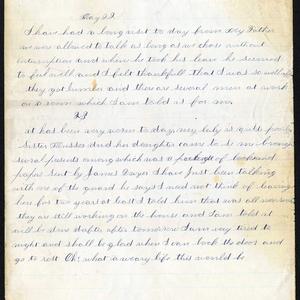 May 22
I have had a long visit to day from My Father
we were allowed to talk as long as we chose without
interruption and when he took his leave he seemed
to feel well and I felt thankfull that I was so well off
they got lumber and there are several men at work
on a room which I am told is for me.
23
it has been very warm to day, my baby is quite poorly
Sister and her daughter came to see me brought
several presents among which was a package of books and
paper sent by James Dwyer I have Just been talking
with one of the guard he says I need not think of leaving
here for two years at least I told him that was all
they are still working on the house and I am told it
will be done day after tomorrow I am very tired to
night and shall be glad when I can lock the door and
go to rest Oh! what a weary life this would be